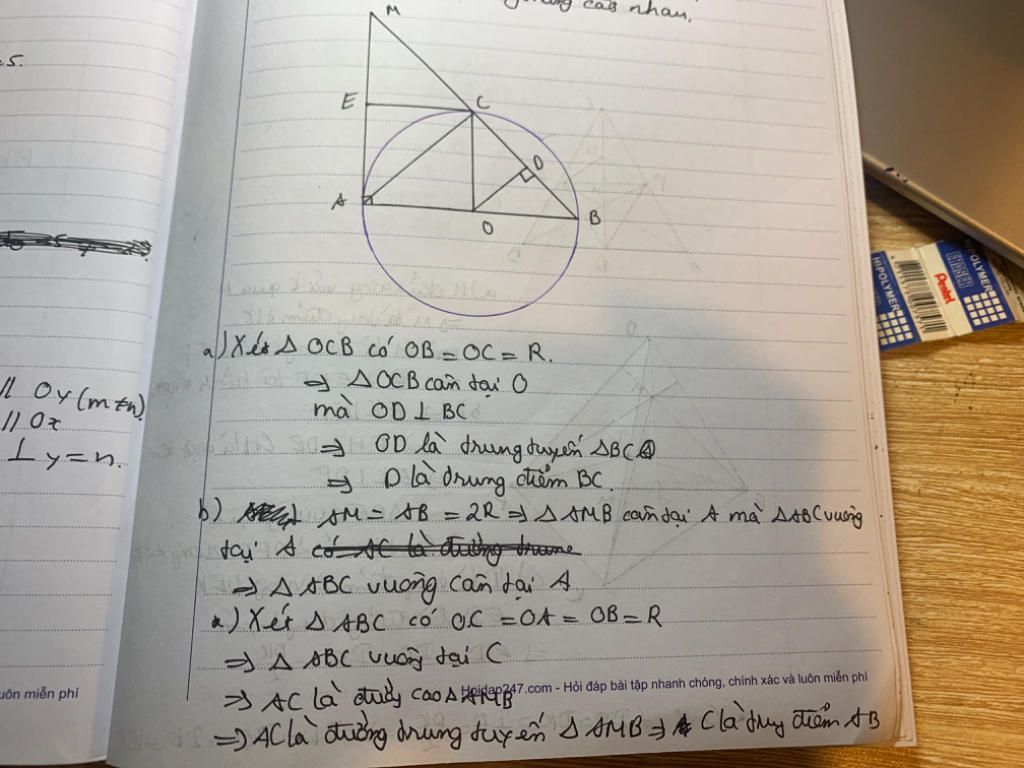 cao nhau.
5.
M
E
C
D
A
O
B
// Oy (m≠n)
// Ox
⊥ y = n.
a) Xét Δ OCB có OB = OC = R.
⇒ Δ OCB cân tại O
mà OD ⊥ BC
⇒ OD là trung tuyến ΔBCO
⇒ D là trung điểm BC.
b) AM = AB = 2R ⇒ Δ AMB cân tại A mà ΔABC vuông
tại A có AC là đường trung
⇒ Δ ABC vuông cân tại A
a) Xét Δ ABC có OC = OA = OB = R
⇒ Δ ABC vuông tại C
⇒ AC là đường cao Δ AMB
Hoidap247.com - Hỏi đáp bài tập nhanh chóng, chính xác và luôn miễn phí
luôn miễn phí
⇒ AC là đường trung tuyến Δ AMB ⇒ C là truy điểm AB
HI-POLYMER
Pentel
HI-POLYMER